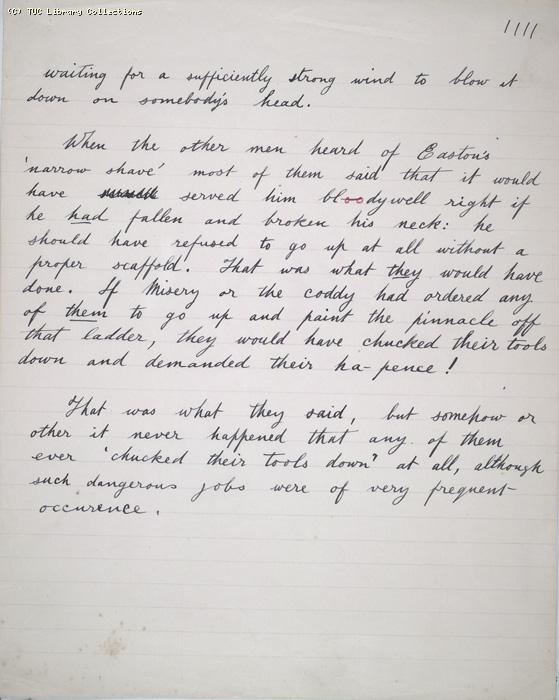 (C) TUC Library Collections
1111
waiting for a sufficiently strong wind to blow it
down on somebody's head.
When the other men heard of Easton's
'narrow shave' most of them said that it would
have served him bloodywell right if
he had fallen and broken his neck: he
should have refused to go up at all without a
proper scaffold. That was what they would have
done. If Misery or the coddy had ordered any
of them to go up and paint the pinnacle off
that ladder, they would have chucked their tools
down and demanded their ha-pence!
That was what they said, but somehow or
other it never happened that any of them
ever 'chucked their tools down' at all, although
such dangerous jobs were of very frequent
occurence.